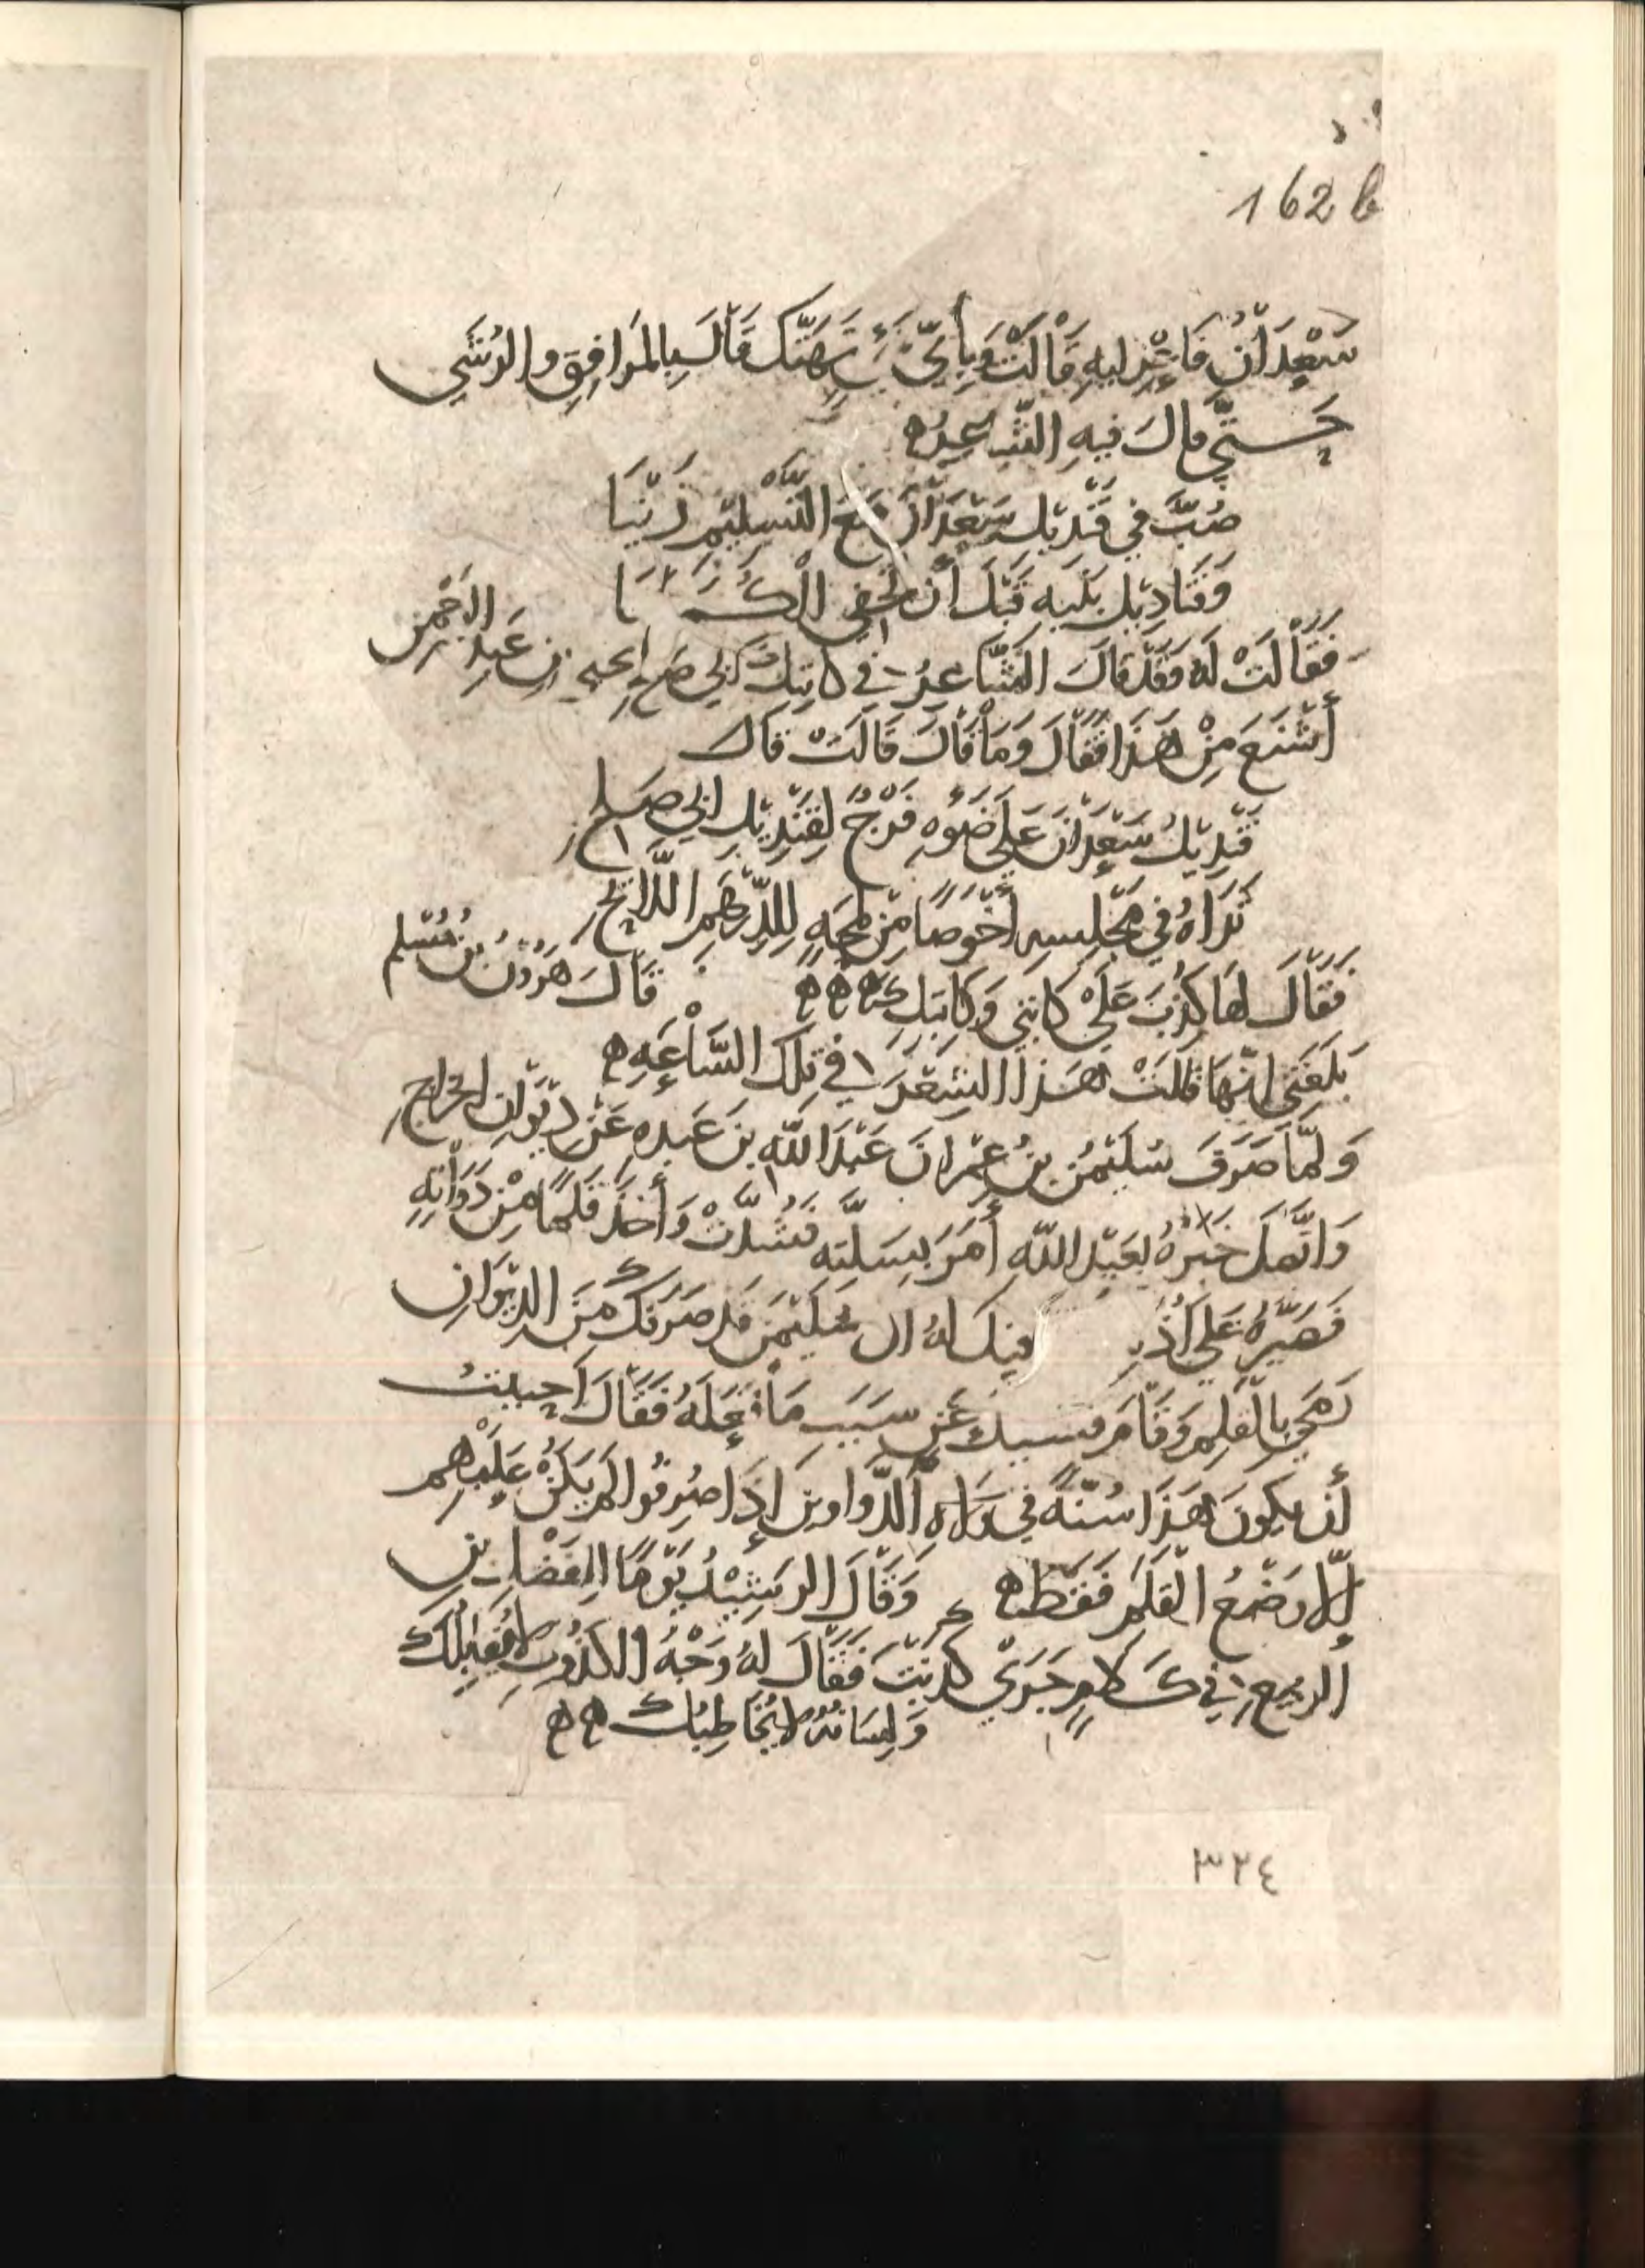 162 b
سَعْدَانُ فَاعْزِلِيهِ قَالَتْ وَبِأَيِّ شَيْءٍ تَهَتَّك قَالَ بِالمَرَافِقِ وَالرُشَي
حَتَّي قال فِيهِ الشَّاعِرُ ه
صُبَّ فِي قَنْدِيْلِ سَعْدَانَ مَعَ التَّسْلِيْمِ زَيْتًا
وَقَنَادِيْلِ بَنِيهِ قَبْلَ أَنْ تخفي الْكُمَيْتَا
فَقَالَتْ لَهُ فَقَدْ قَالَ الشَّاعِرُ فِي كَاتِبِكَ أَبِي صَالِح يحيي بن عَبدِ الرَحْمن
أَشْنَعَ مِنْ هَذَا فَقَالَ وَمَا قَالَ قَالَتْ قال
قَنْدِيْلُ سَعْدَانَ عَلَي ضَوْءِهِ فَرْخٌ لِقَنْدِيْلِ ابِي صَالح
تَرَاهُ فِي مَجْلِسِهِ أَخْوَصًا مِنْ لَمْحِهِ لِلدِّرْهَمِ اللَّائِحِ
فَقَالَ لها كُذِبَ عَلَيْ كَاتِبِي وَكَاتِبِكِ ه ه ه قَالَ هَرُونُ بنُ مُسْلم
بَلَغَنِي انَّهَا قَالَتْ هَذَا الشِعْرَ فِي تِلكَ السَّاعَةِ ه
وَلمَّا صَرَفَ سُلَيْمنُ بنُ عِمْرانَ عَبْدَ اللَّهِ بنَ عَبده عَنْ دِيْوَانِ الخراجِ
وَاتَّصَلَ خَبَرُهُ بِعَبْدِ اللَّهِ أَمَرَ بِسَلَّتِه فَشُدَّتْ وَأَخَذَ قَلَمًا مِنْ دَوَاتِهِ
فَصَيَّرَهُ عَلي أُذُنِهِ فقيل لَهُ ان سُلَيْمَنَ قد صَرَفَكَ مِنَ الدِيْوَانِ
رَمَي بِالْقَلِم وَقَامَ فسيل عَن سَبَبِ مَا فَعَلَهُ فَقَالَ أَحبَبتُ
أَن يكونَ هَذَا سُنَّةً فِي وُلاة الدَّواوين إِذَا صُرِفُوا لم يَكُنْ عَلَيْهِم
إِلّا وَضْعُ الْقَلَمِ فَقَطْ ه وَقَالَ الرَشِيْدُ يَوْمًا لِلْفَضْلِ بنِ
الربيع فِي كَلامٍ جَرَي كَذَبْتَ فَقَالَ لَهُ وَجْهُ الكَذُوبِ لا يُقَابِلُكَ
وَلِسَانُهُ لا يُخَاطِبُك ه ه
٣٢٤